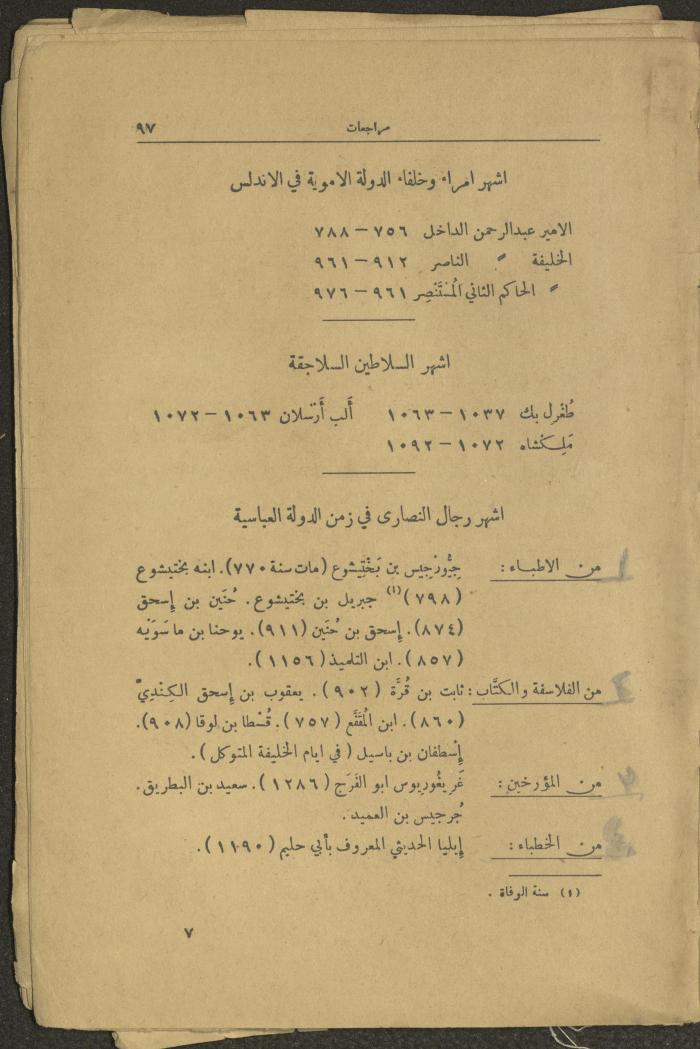 مراجعات ٩٧
اشهر امراء وخلفاء الدولة الاموية في الاندلس
الامير عبدالرحمن الداخل ٧٥٦ – ٧٨٨
الخليفة 〃 الناصر ٩١٢ – ٩٦١
〃 الحاكم الثاني المُسْتَنْصِر ٩٦١ – ٩٧٦
اشهر السلاطين السلاجقة
طُغْرِل بك ١٠٣٧ – ١٠٦٣ أَلب أَرْسلان ١٠٦٣ – ١٠٧٢
مَلِكْشاه ١٠٧٢ – ١٠٩٢
اشهر رجال النصارى في زمن الدولة العباسية
من الاطباء : جِيُّورْجِيس بن بَخْتِيشوع (مات سنة ٧٧٠). ابنه بختيشوع
(٧٩٨)(١) جبريل بن بختيشوع . حُنَين بن إِسحق
(٨٧٤). إِسحق بن حُنَين (٩١١). يوحنا بن ماسَوَيْه
(٨٥٧). ابن التلميذ (١١٥٦).
من الفلاسفة والكتَّاب : ثابت بن قُرَّة (٩٠٢). يعقوب بن إِسحق الكِنْدِيّ
(٨٦٠). ابن المُقَفَّع (٧٥٧). قُسْطا بن لوقا (٩٠٨).
إِسْطفان بن باسيل (في ايام الخليفة المتوكل).
من المؤرخين : غَريغُوريوس ابو الفَرَج (١٢٨٦). سعيد بن البطريق .
جُرجيس بن العميد .
من الخطباء : إِيليا الحديثي المعروف بأَبي حليم (١١٩٠).
(١) سنة الوفاة .
٧